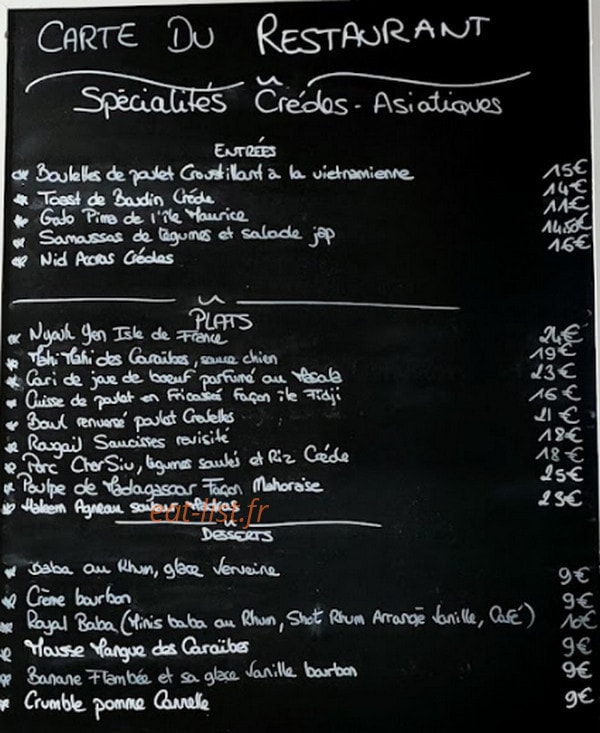 CARTE DU RESTAURANT
Spécialités Créoles - Asiatiques
ENTRÉES
Boulettes de poulet Croustillant à la vietnamienne 15€
Toast de Boudin Créole 14€
Gato Pima de l'île Maurice 11€
Samassas de légumes et salade jap 14,50€
Nid Accras Créoles 16€
PLATS
Nyauk Yen Isle de France 24€
Mahi Mahi des Caraïbes, sauce chien 19€
Cari de joue de boeuf parfumé au Masala 23€
Cuisse de poulet en Fricassé Façon île Fidji 16€
Bowl renversé poulet Crevettes 21€
Rougail Saucisses revisité 18€
Porc Char Siu, légumes sautés et Riz Créole 18€
Poulpe de Madagascar Façon Mahoraise 25€
Haleem Agneau Madras 23€
eat-list.fr
DESSERTS
Baba au Rhum, glace Verveine 9€
Crème bourbon 9€
Royal Baba (Minis baba au Rhum, Shot Rhum Arrangé Vanille, Café) 10€
Mousse Mangue des Caraïbes 9€
Banane Flambée et sa glace Vanille bourbon 9€
Crumble pomme Cannelle 9€